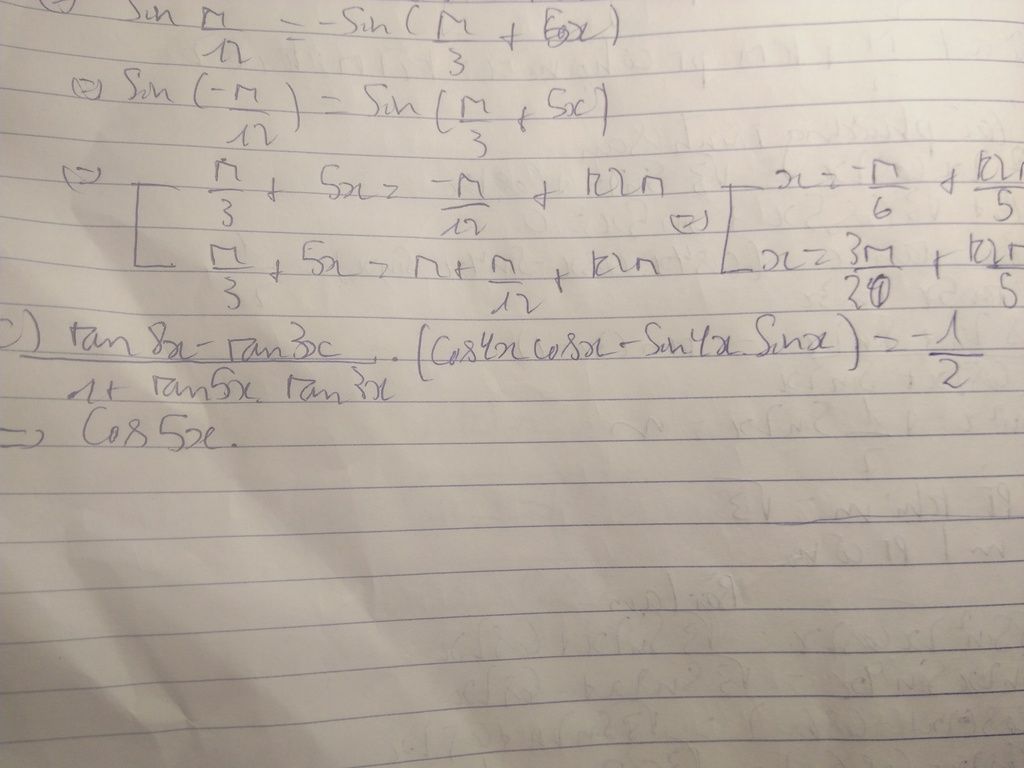 Sin π/12 = -Sin (π/3 + 5x)
(=) Sin (-π/12) = Sin (π/3 + 5x)
(=) [ π/3 + 5x = -π/12 + k2π (=) [ x = -π/6 + k2π/5
π/3 + 5x = π + π/12 + k2π x = 3π/20 + k2π/5
c) tan 8x - tan 3x / 1 + tan 5x. tan 3x . (Cos4x cosx - Sin4x. Sinx) = -1/2
=> Cos 5x.